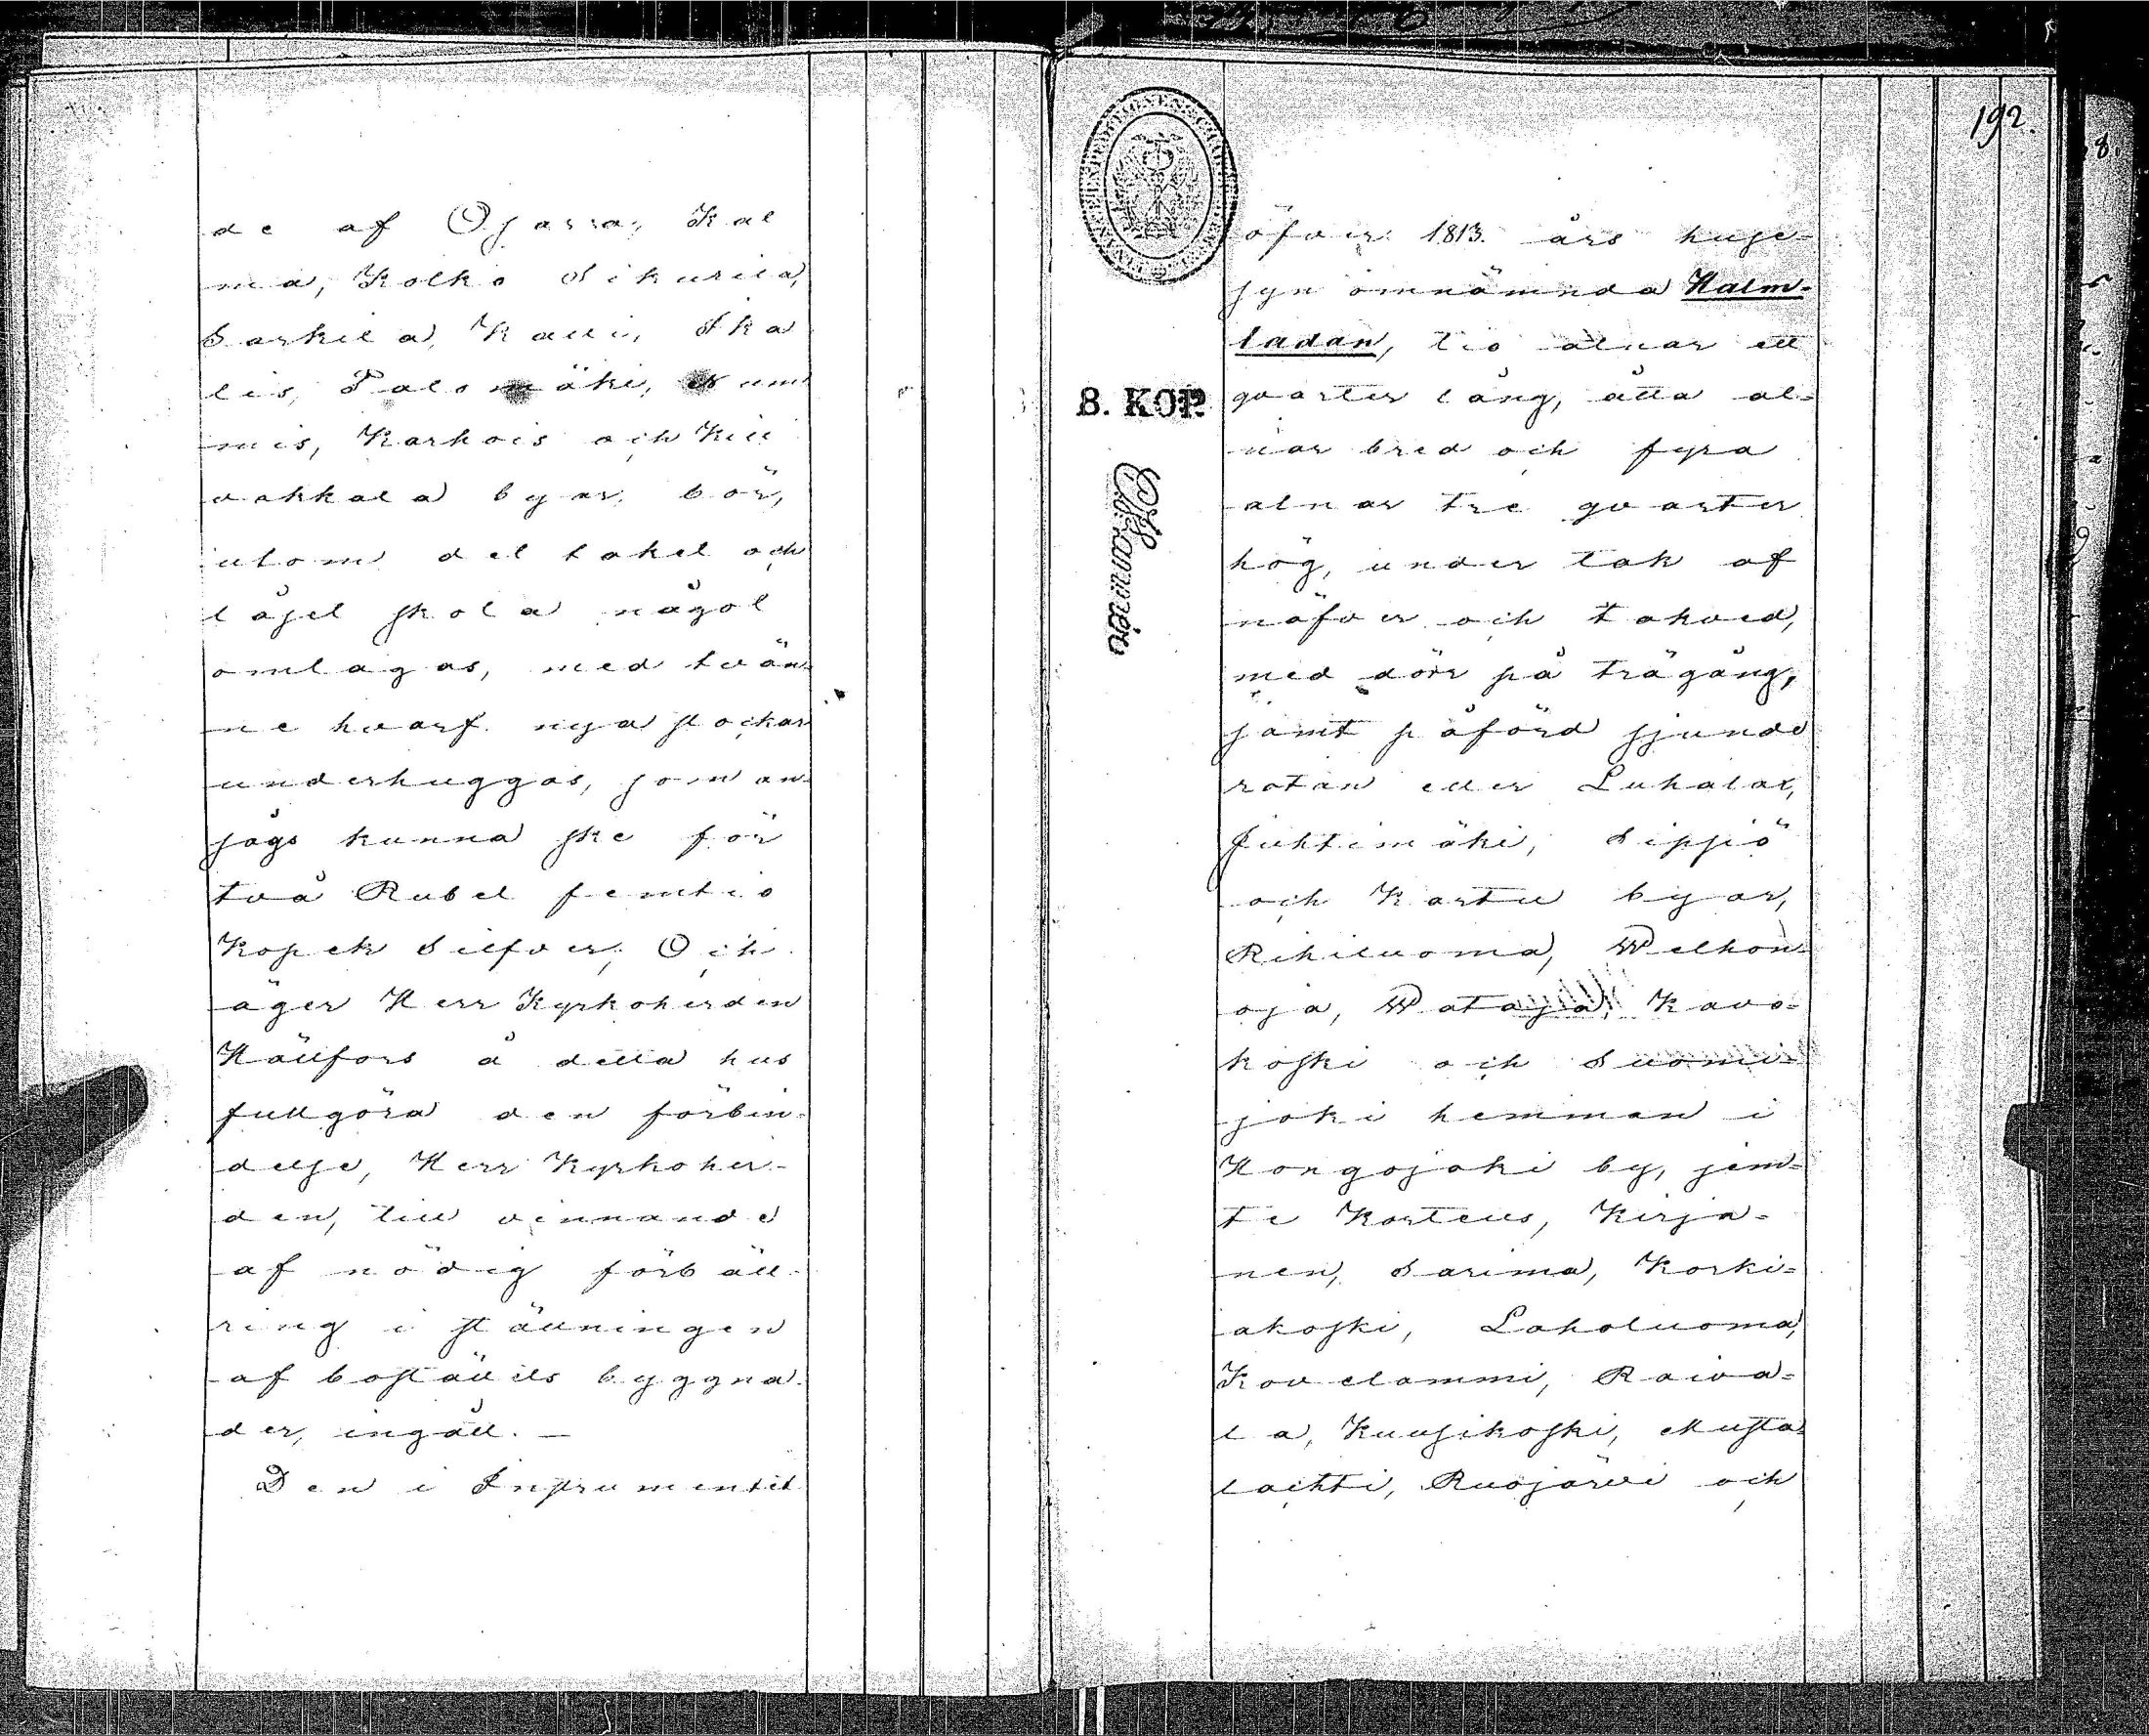 de af Ojarra, Kal
ma, Kolko Sikurila,
Sarkila, Kalli, Ska
lis, Palomäki, Num
mis, Karhois och Kill
vakkala byar, bör,
utom det taket och
låset skola något
omlagas, med tvän-
ne hvarf nya stockar
underhuggas, som an-
sågs kunna ske för
två Rubel femtio
Kopek Silfver; Och
äger Herr Kyrkoherden
Hällfors å detta hus
fullgöra den förbin-
delse, Herr Kyrkoher-
den, till vinnande
af nödig förbätt-
ring i ställningen
af boställets byggna-
der, ingått. —
Den i Instrumentet
192.
öfver 1813. års huse-
syn omnämnda Halm-
ladan, tio alnar ett
8. KOP.
qvarter lång, åtta al-
nar bred och fyra
alnar tre qvarter
hög, under tak af
näfver och takved,
med dörr på trägång,
samt påförd sjunde
rotan eller Luhalax,
Juhtimäki, Sippiö
och Kartu byar,
Rihiluoma, Welhon-
oja, Wataja, Kavo-
koski och Suomi-
joki hemman i
Hongojoki by, jem-
te Korteus, Kirja-
nen, Sarima, Korki-
akoski, Loholuoma,
Kovelammi, Raiva-
la, Kuusikoski, Musta-
lachti, Ruojärvi och